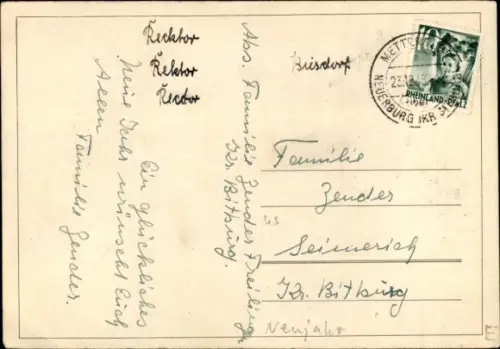 Recktor
Rektor
Rector
Biesdorf
Ein glückliches
Neue Jahr wünscht Euch
Allen
Familie Zender.
Abs. Familie Zender Freilingen
Kr. Bitburg.
METT
23.12.48
NEUERBURG (KR.
RHEINLAND-PFALZ
Familie
Zender
Seimerich
Kr. Bitburg
Neujahr